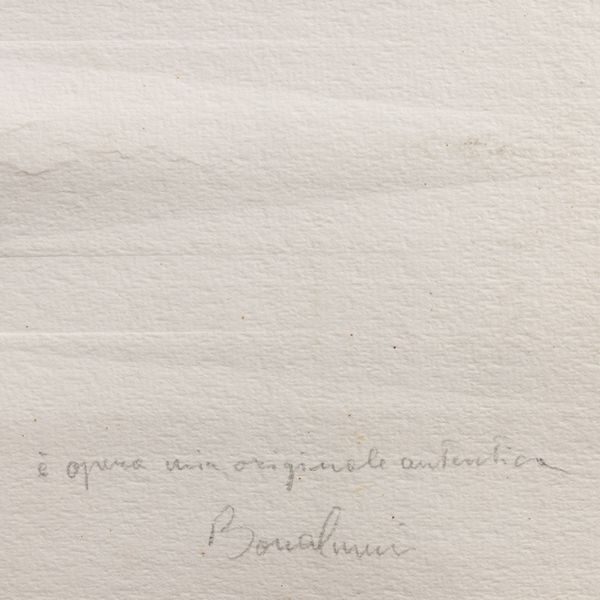 è opera mia originale autentica
Bonalumi